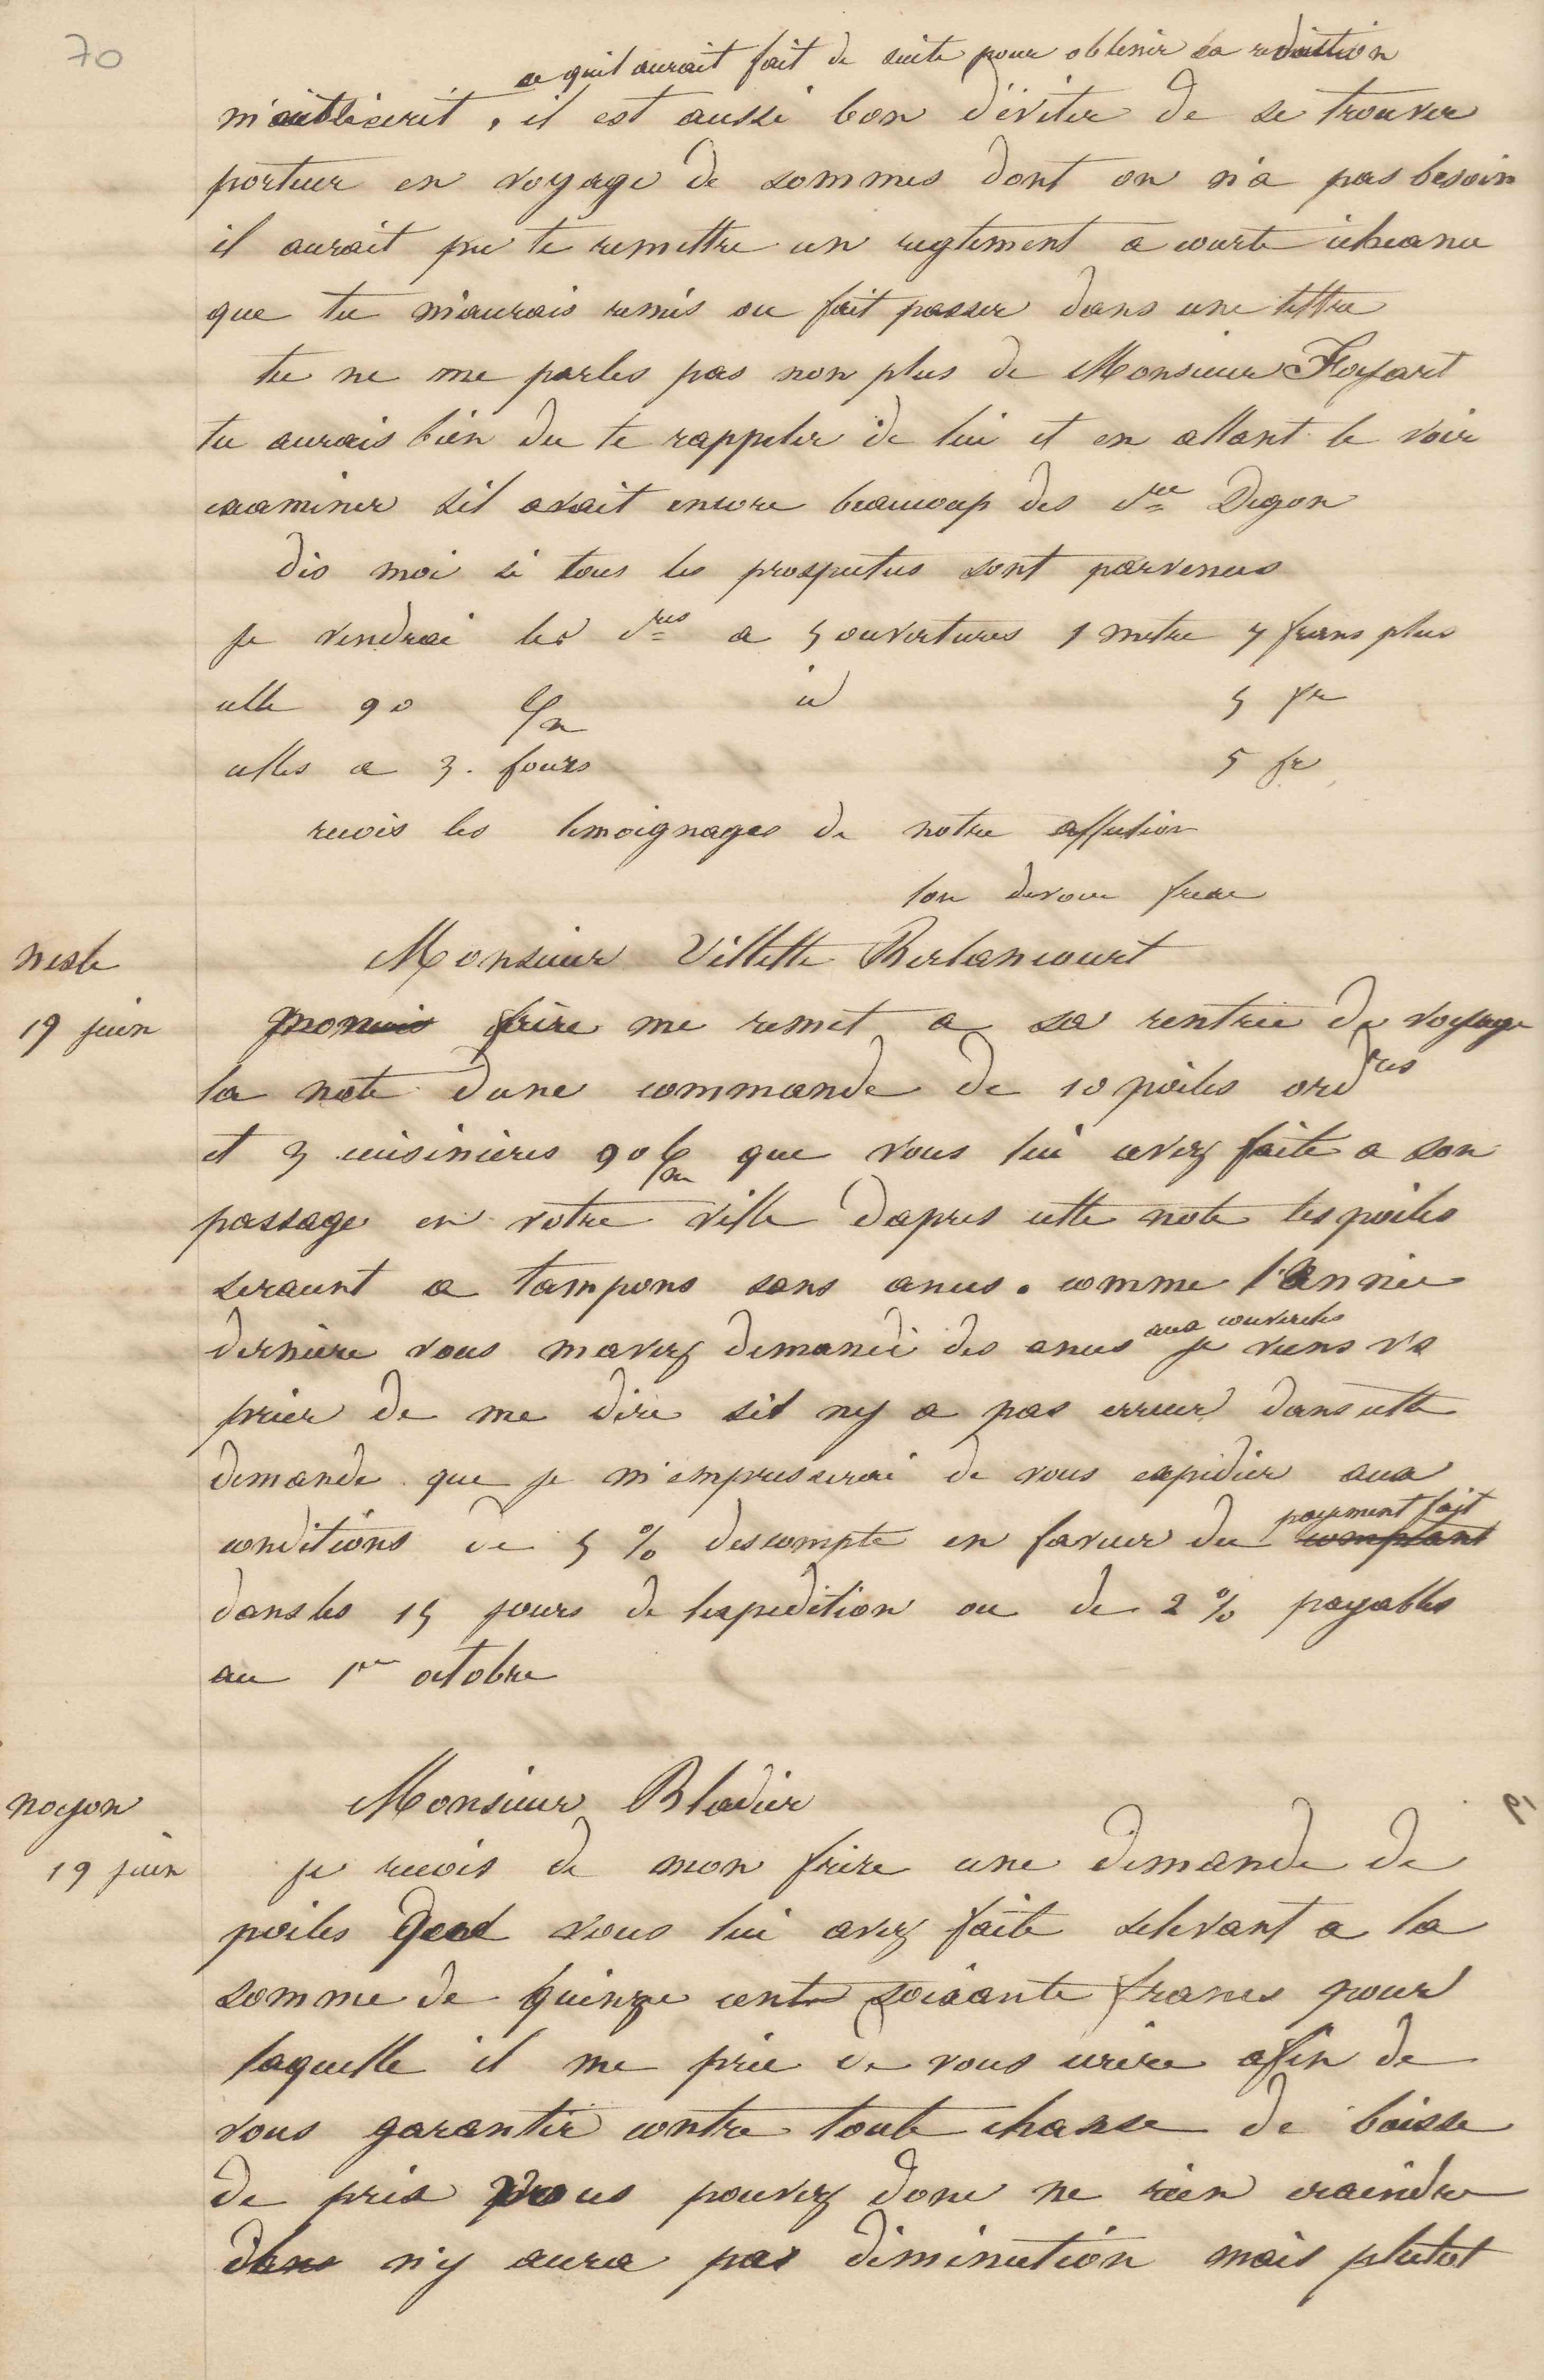 70
ce quil aurait fait de suite pour obtenir sa reduction
m'ecrit, il est aussi bon d'éviter de se trouver
porteur en voyage de sommes dont on n'a pas besoin
il aurait pu te remettre un reglement a courte echeance
que tu m'aurais remis ou fait passer dans une lettre
tu ne me parles pas non plus de Monsieur Floyart
tu aurais bien du te rappeler de lui et en allant le voir
examiner sil avait encore beaucoup des Degon
dis moi si tous les prospectus sont parvenus
je vendrai les dres a 5 ouvertures 1 metre 7 francs plus
celle 90 c/m id 5 fr
celles a 3. fours 5 fr
recois les temoignages de notre affection
ton devoue frere
nesle
19 juin
Monsieur Villette Berlancourt
mon frère me remet a sa rentrée de voyage
la note dune commande de 10 poiles ordres
et 3 cuisinieres 90 c/m que vous lui avez faite a son
passage en votre ville dapres cette note les poiles
seraient a tampons sans aneus. comme l'année
derniere vous mavez demandé des aneus aux couvercles je viens vs
prier de me dire sil ny a pas erreur dans cette
demande que je m'empresserai de vous expedier aux
conditions de 5 % descompte en faveur du payement fait comptant
dans les 15 jours de lexpedition ou de 2 % payables
au 1er octobre
noyon
19 juin
Monsieur Bladier
je recois de mon frère une demande de
poiles que vous lui avez faite selevant a la
somme de quinze cent soixante francs pour
laquelle il me prie de vous ecrire afin de
vous garantir contre toute chasse de baisse
de prix vous pouvez donc ne rien craindre
n'y aura pas diminution mais plutot